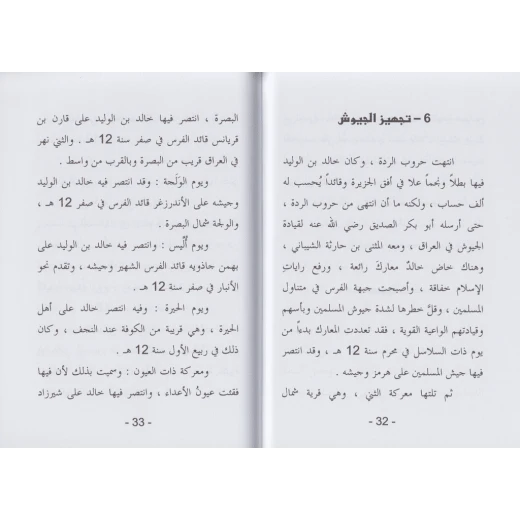 6 – تجهيز الجيوش
انتهت حروب الردة ، وكان خالد بن الوليد
فيها بطلاً ونجماً علا في أفق الجزيرة وقائداً يُحسب له
ألف حساب ، ولكنه ما أن انتهى من حروب الردة ،
حتى أرسله أبو بكر الصديق رضي الله عنه لقيادة
الجيوش في العراق ، ومعه المثنى بن حارثة الشيباني ،
وهناك خاض خالدٌ معارك رائعة ، ورفع رايات
الإسلام خفاقة ، وأصبحت جبهة الفرس في متناول
المسلمين ، وقلَّ خطرها لشدة جيوش المسلمين وبأسهم
وقيادتهم الواعية القوية ، فقد تعددت المعارك بدءاً من
يوم ذات السلاسل في محرم سنة 12 هـ ، وقد انتصر
فيها جيش المسلمين على هرمز وجيشه .
ثم تلتها معركة الثني ، وهي قرية شمال
- 32 -
البصرة ، انتصر فيها خالد بن الوليد على قارن بن
قريانس قائد الفرس في صفر سنة 12 هـ . والثني نهر
في العراق قريب من البصرة وبالقرب من واسط .
ويوم الوَلَجة : وقد انتصر فيه خالد بن الوليد
وجيشه على الأندرزغر قائد الفرس في صفر 12 هـ ،
والولجة شمال البصرة .
ويوم أُلَّيس : وانتصر فيه خالد بن الوليد على
بهمن جاذويه قائد الفرس الشهير وجيشه ، وتقدم نحو
الأنبار في صفر سنة 12 هـ .
ويوم الحيرة : وفيه انتصر خالد على أهل
الحيرة ، وهي قريبة من الكوفة عند النجف ، وكان
ذلك في ربيع الأول سنة 12 هـ .
ومعركة ذات العيون : وسميت بذلك لأن فيها
فقئت عيونُ الأعداء ، وانتصر فيها خالد على شيرزاد
- 33 -